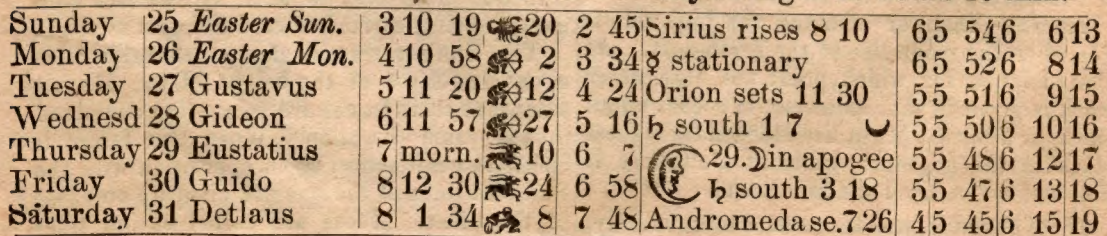 Sunday 25 Easter Sun. 3 10 19 20 2 45 Sirius rises 8 10 6 5 54 6 6 13
Monday 26 Easter Mon. 4 10 58 2 3 34 ☿ stationary 6 5 52 6 8 14
Tuesday 27 Gustavus 5 11 20 12 4 24 Orion sets 11 30 5 5 51 6 9 15
Wednesd 28 Gideon 6 11 57 27 5 16 ♄ south 1 7 5 5 50 6 10 16
Thursday 29 Eustatius 7 morn. 10 6 7 29. ☽ in apogee 5 5 48 6 12 17
Friday 30 Guido 8 12 30 24 6 58 ♄ south 3 18 5 5 47 6 13 18
Saturday 31 Detlaus 8 1 34 8 7 48 Andromeda se. 7 26 4 5 45 6 15 19